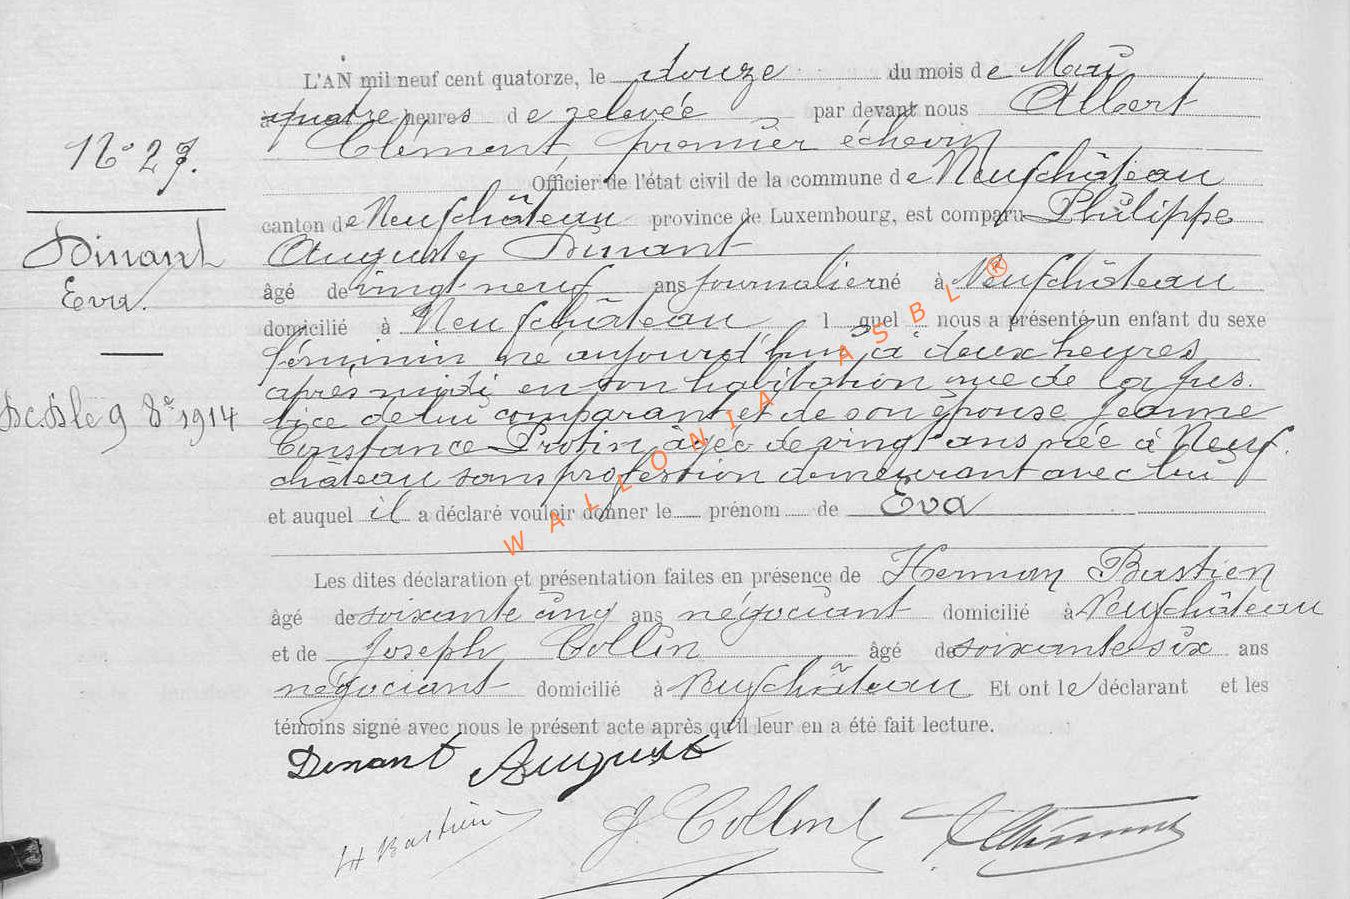 L'AN mil neuf cent quatorze, le douze du mois de Mai
à quatre heures de relevée par devant nous Albert
Clément, premier échevin
Officier de l'état civil de la commune de Neufchâteau
canton de Neufchâteau province de Luxembourg, est comparu Philippe
Auguste Dinant
âgé de vingt neuf ans journalier né à Neufchâteau
domicilié à Neufchâteau lequel nous a présenté un enfant du sexe
féminin né aujourd'hui, à deux heures
après midi en son habitation rue de la jus.
tice de lui comparant et de son épouse Jeanne
Constance Protin, âgée de vingt ans née à Neuf.
château sans profession demeurant avec lui
et auquel il a déclaré vouloir donner le prénom de Eva
Les dites déclaration et présentation faites en présence de Hermon Bastien
âgé de soixante cinq ans négociant domicilié à Neufchâteau
et de Joseph Collin âgé de soixante six ans
négociant domicilié à Neufchâteau Et ont le déclarant et les
témoins signé avec nous le présent acte après qu'il leur en a été fait lecture.
Dinant Auguste
H Bastien J Collin Clément
N° 27.
Dinant
Eva.
le 9 8e 1914
WALLONIA ASBL ®